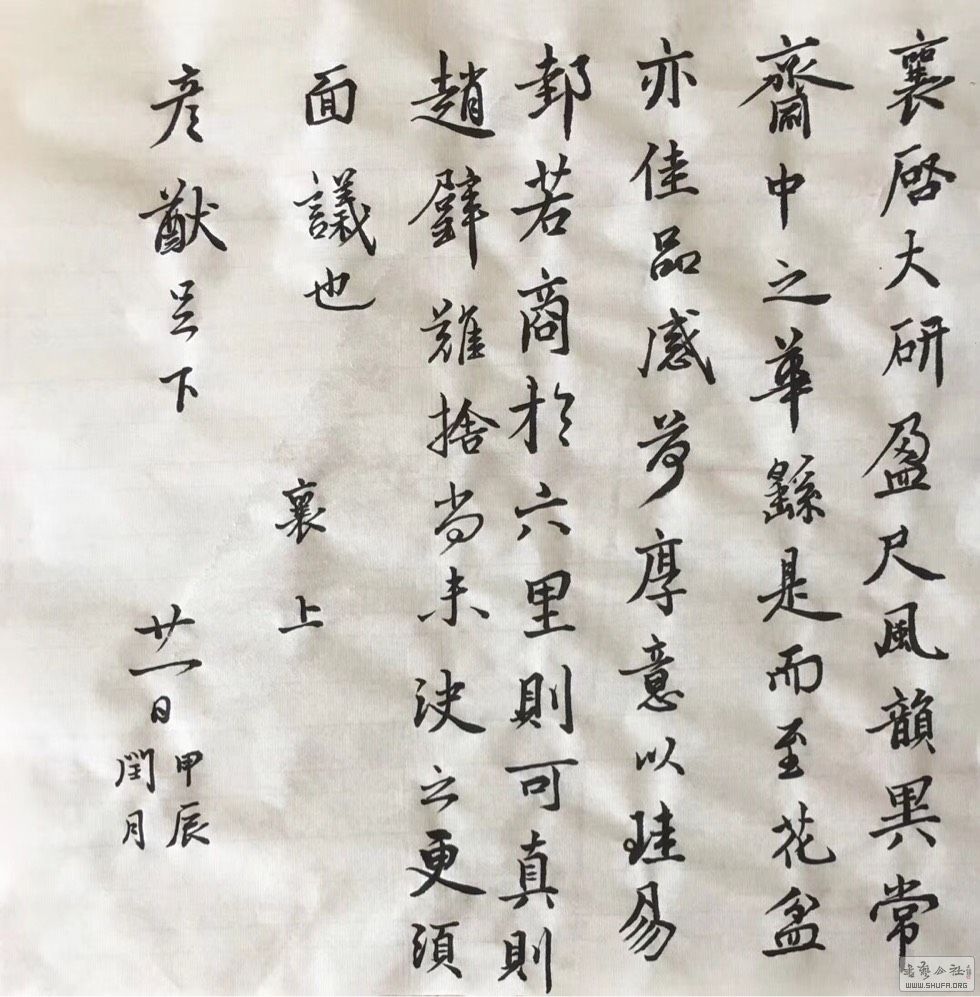 襄啓大研盈尺風韻異常
齋中之華繇是而至花盆
亦佳品感荷厚意以珪易
邽若商於六里則可真則
趙璧難捨尚未決之更須
面議也 襄上
彥猷足下 廿一日
甲辰
閏月
WWW.SHUFA.ORG